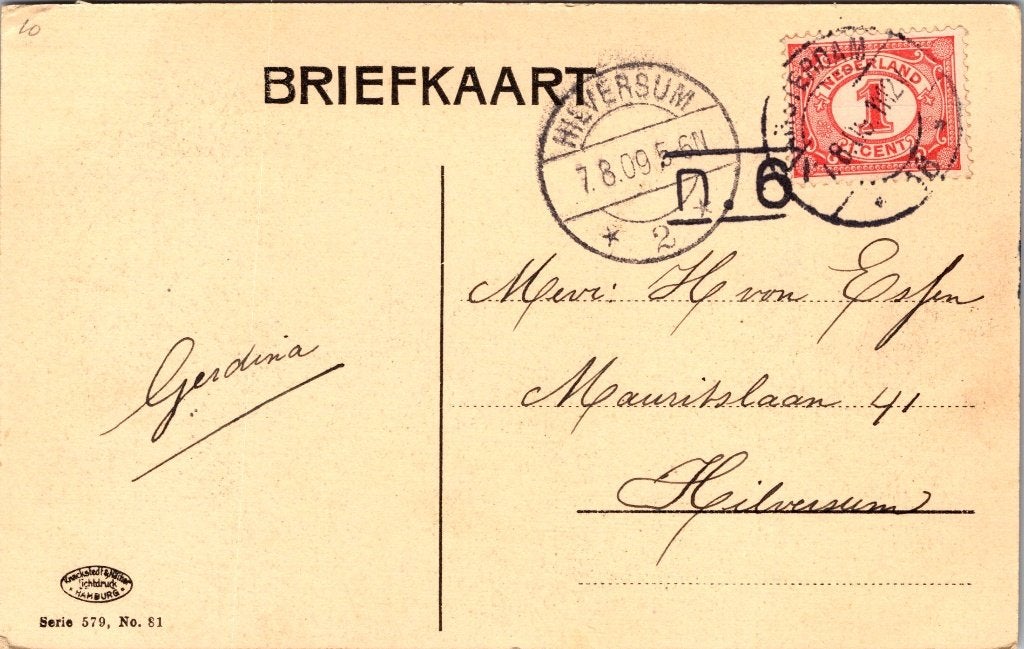 10
BRIEFKAART
HILVERSUM
7.8.09 5-6N
2
n.6
AMSTERDAM
7.8
NEDERLAND
1
1 CENT
Mevr: H von Essen
Mauritslaan 41
Hilversum
Gerdina
Knackstedt & Näther
Lichtdruck
HAMBURG
Serie 579, No. 81